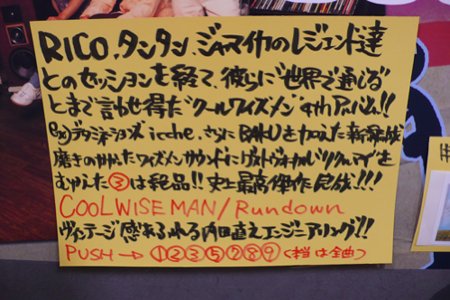 RICO、タンタン、ジャマイカのレジェンド達
とのセッションを経て、彼らに"世界で通じる"
とまで言わせ得た"クールワイズメン"4thアルバム!!
exデタミネーションズ icche、さらにBAKUを加えた新編成
磨きのかかったワイズメンサウンドに
むかえた③は絶品!! 史上最高傑作完成!!!
COOL WISE MAN/Rundown
ヴィンテージ感あふれる内田直之エンジニアリング!!
PUSH → ①②③⑤⑦⑧⑨(本当は全曲)